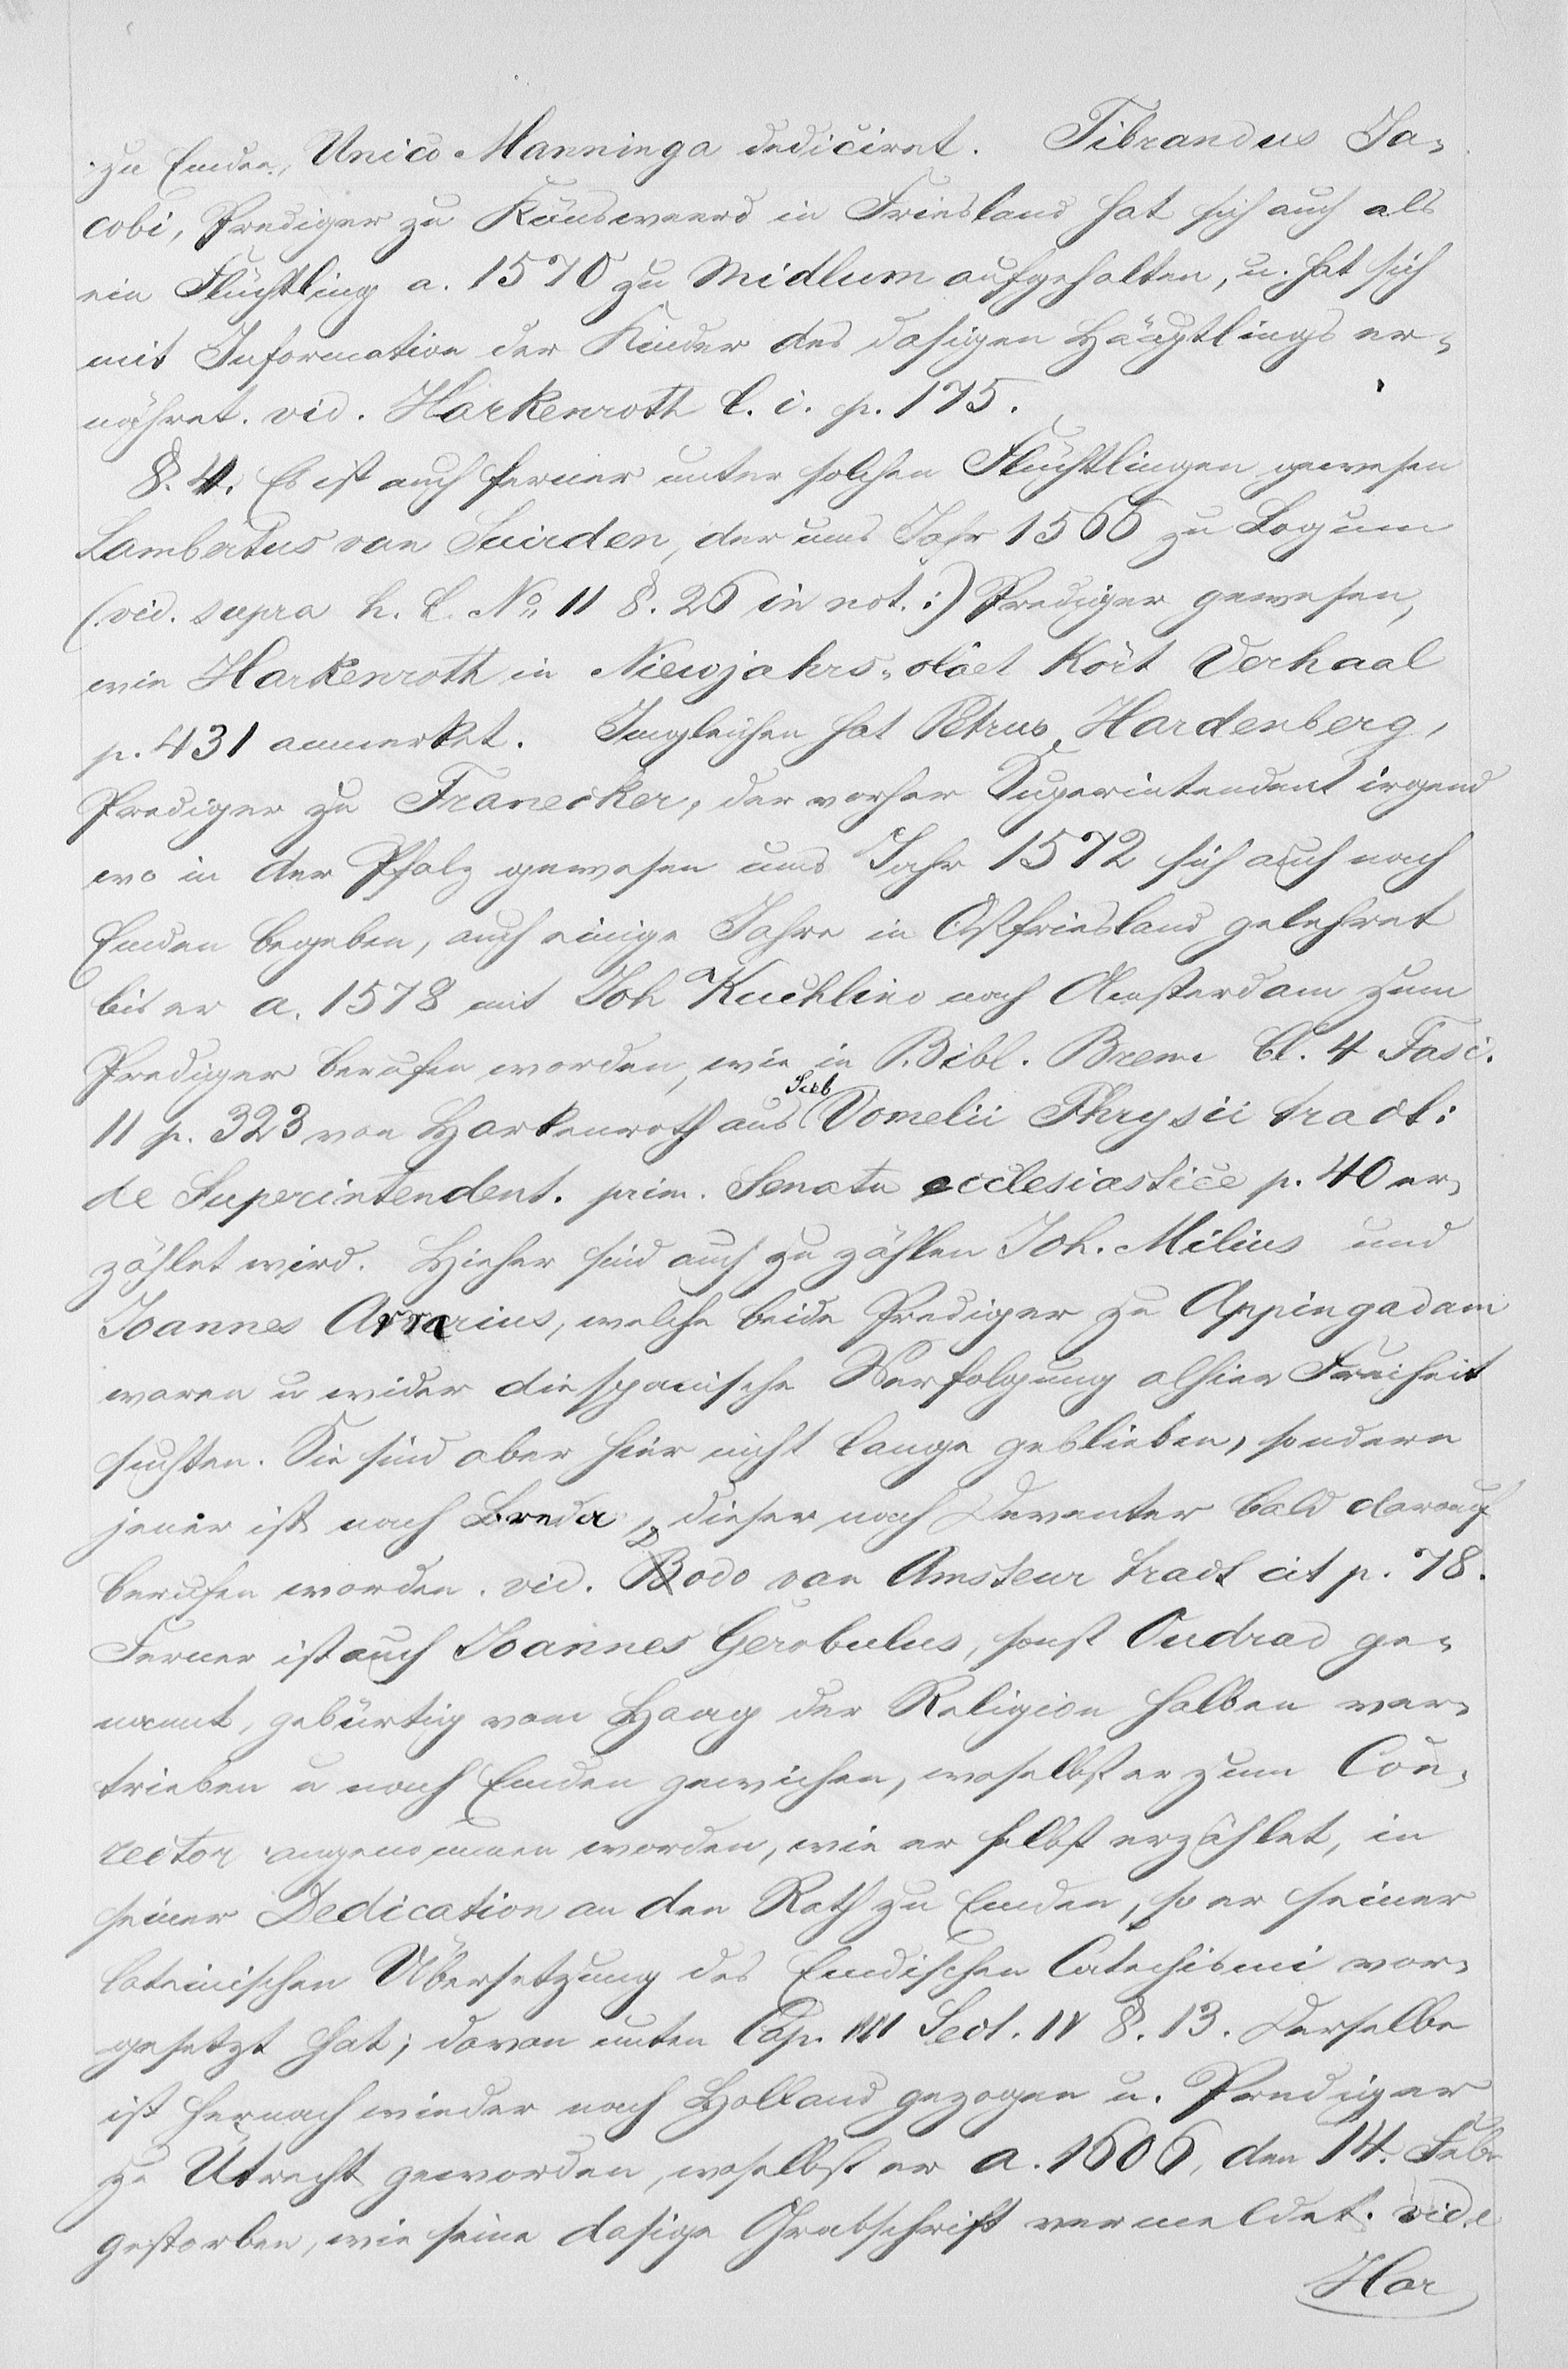 zu Emden, Unico Manninga dediciret. Tibrandus Ja-
cobi, Prediger zu Könswaard in Friesland hat sich auch als
ein Flüchtling a. 1570 zu Midlum aufgehalten, u. hat sich
mit Information der Kinder des dasigen Häuptlings er-
nähret. vid. Harkenroth l. c. p. 175.
§. 4. Es ist auch ferner unter solchen Flüchtlingen gewesen
Lambertus van Suirden, der ums Jahr 1566 zu Logum
(vid. supra h. l. No. 11 §. 26 in not.:) Prediger gewesen,
wie Harkenroth in Niewjahrs- Kort Verhaal
p. 431 anmerket. Imgleichen hat Petrus Hardenberg,
Prediger zu Franecker, der vorher Superintendent irgend
wo in der Pfalz gewesen ums Jahr 1572 sich auch nach
Emden begeben, auch einige Jahre in Ostfriesland gelehret
bis er a. 1578 mit Joh Kuchlino nach Amsterdam zum
Prediger berufen worden, wie in Bibl. Brem. Cl. 4 Fasc.
11 p. 323 von Harkenroth aus Sieb Vomelii Phrysii tract:
de Superintendent. prim. Senatu ecclesiastice p. 40 er-
zählet wird. Hieher sind auch zu zählen Joh. Milius und
Joannes Arrarius, welche beide Prediger zu Appingadam
waren u wider die spanische Verfolgung alhier Freiheit
suchten. Sie sind aber hier nicht lange geblieben, sondern
jener ist nach Breda, dieser nach Deventer bald darauf
berufen worden. vid. Dodo van Amsteur tract cit p. 78.
Ferner ist auch Joannes Gerobulus, sonst Oudrad ge-
nannt, gebürtig vom Haag der Religion halben ver-
trieben u nach Emden gewichen, woselbst er zum Con-
rector angenommen worden, wie er selbst erzählet, in
seiner Dedication an den Rath zu Emden, so er seiner
lateinischen Übersetzung des Emdischen Catechismi vor-
gesetzt hat; davon unten Cap. III Sect. IV §. 13. Derselbe
ist hernach wieder nach Holland gezogen u. Prediger
zu Utrecht geworden, woselbst er a. 1606, den 14. Febr
gestorben, wie seine dasige Grabschrift vermeldet. vide
Har